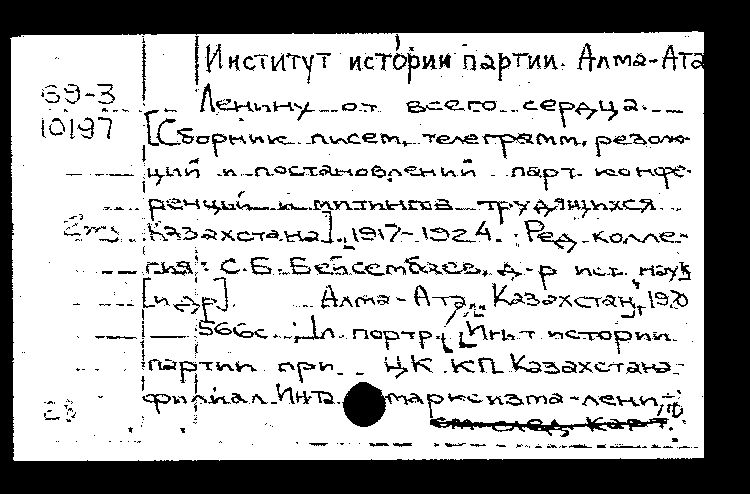 Институт истории партии. Алма-Ата
69-3 Ленину от всего сердца.
10197 [Сборник писем, телеграмм, резолю-
ций и постановлений парт. конфе-
ренций и митингов трудящихся
Казахстана]. 1917-1924. Ред. колле-
гия: С.Б. Бейсембаев, д-р ист. наук
[и др]. Алма-Ата, "Казахстан", 1970
566с.; 1л. портр. (Ин-т истории
партии при ЦК КП Казахстана-
филиал Ин-та марксизма-лени-
28
см. след. карт.